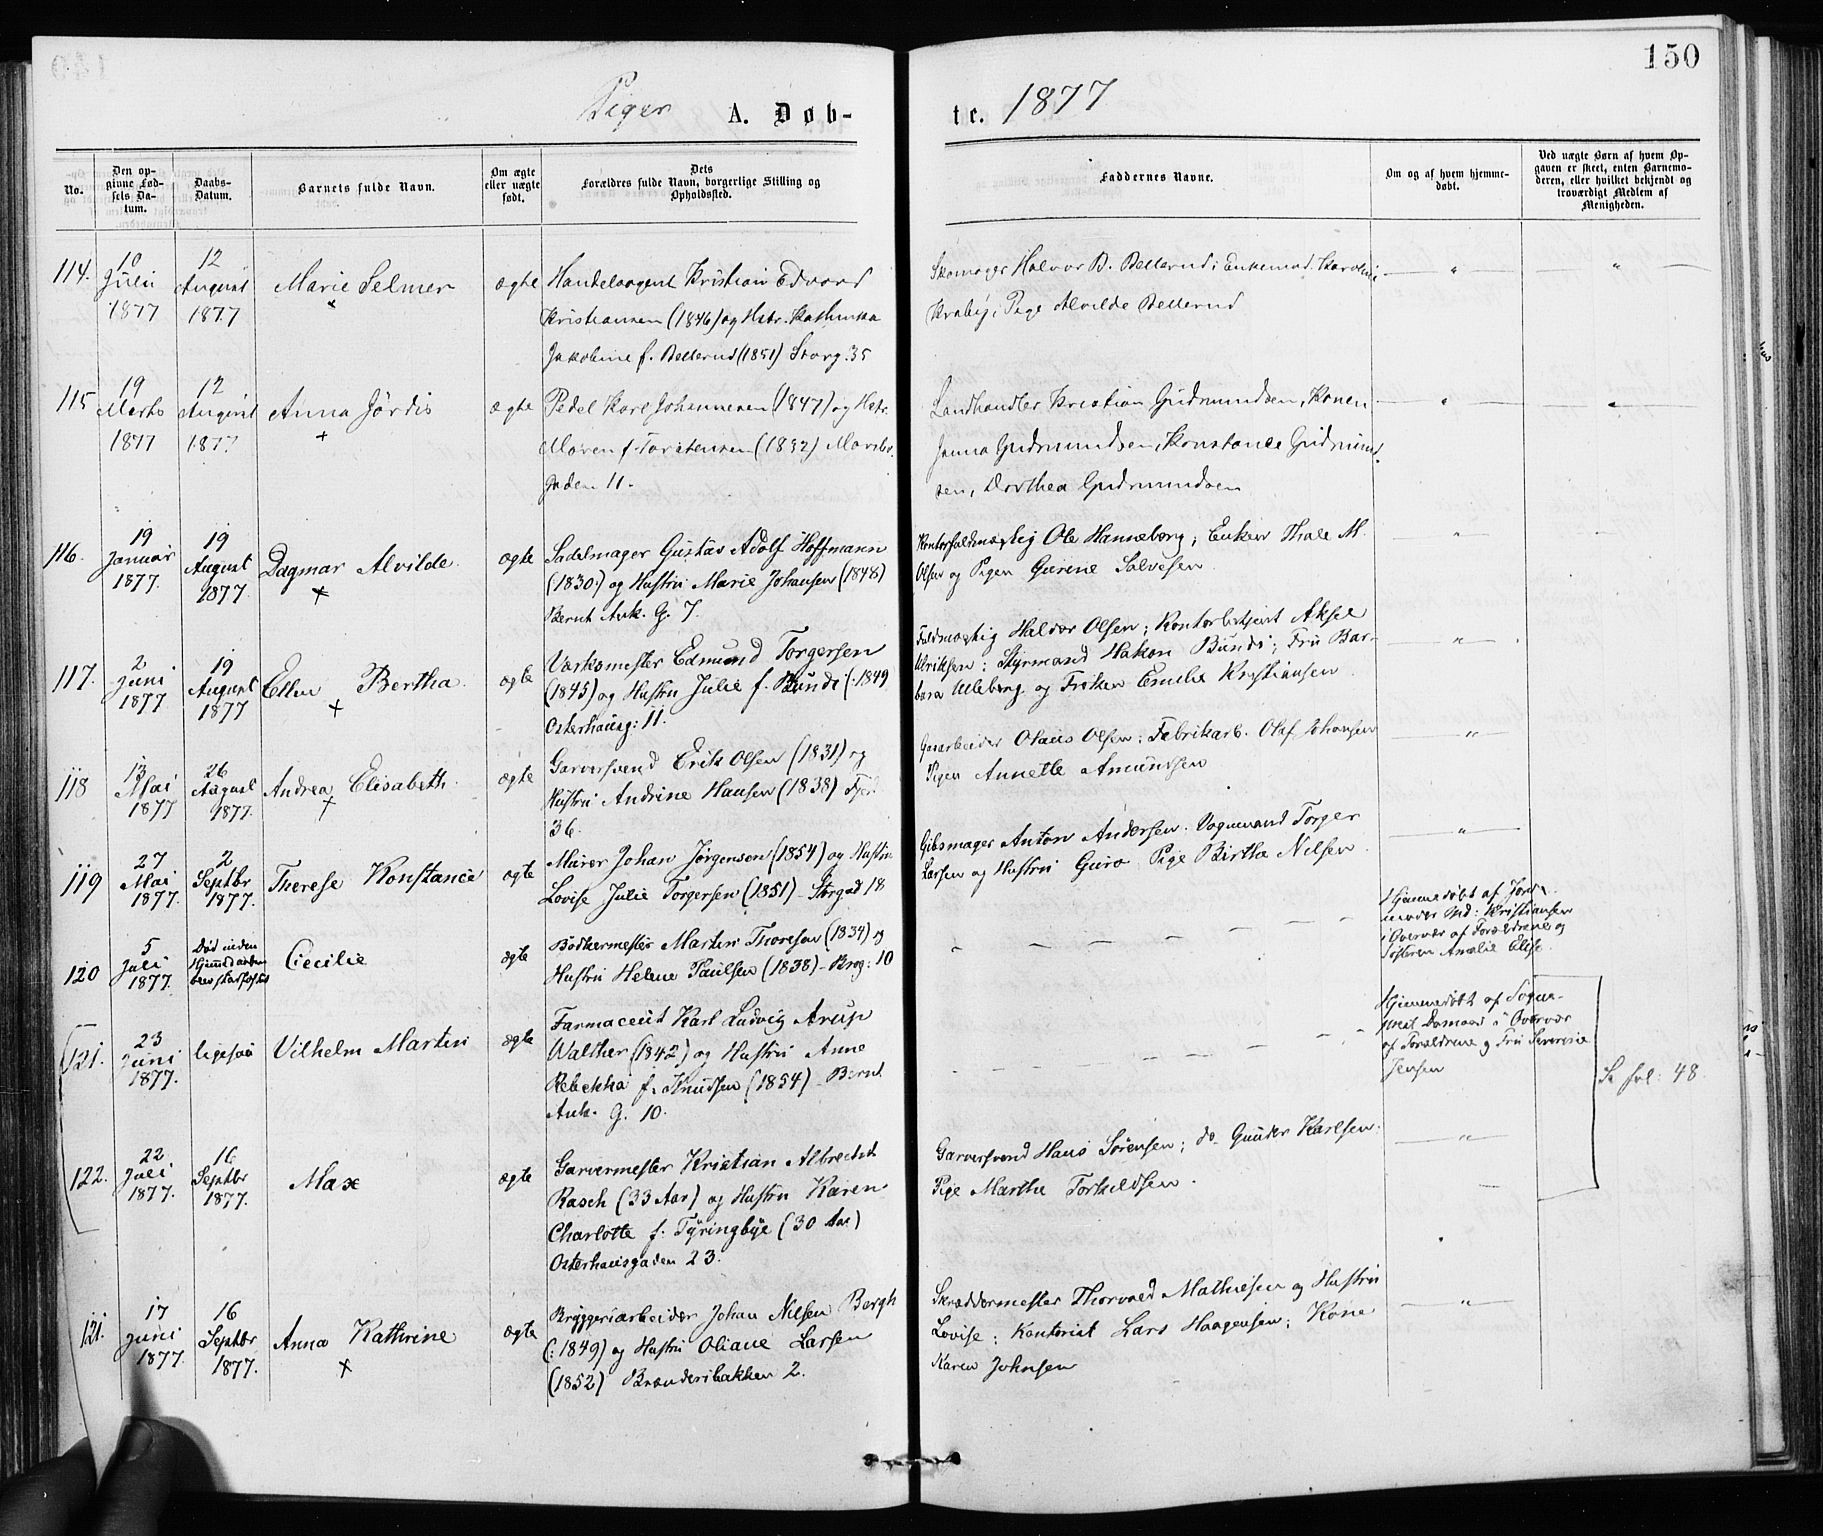 150
Piger A. Døb-
te. 1877
No.
Den op-
givne Fød-
sels Da-
tum.
Daabs-
Datum.
Barnets fulde Navn.
Om ægte
eller uægte
født.
Dets
Forældres fulde Navn, borgerlige Stilling og
Opholdssted.
Faddernes Navne.
Om og af hvem hjemme-
døbt.
Ved uægte Børn af hvem Op-
gaven er skeet, enten Barnemo-
deren, eller hvilket bekjendt og
troværdigt Medlem af
Menigheden.
114.
10
Juli
1877
12
August
1877
Marie Selmer
ægte
Handelsagent Kristian Edvard
Kristiansen (1846) og Hstr. Kathinka
Jakobine f. Bellerud (1851) Storg. 35
Skomager Halvor B. Bellerud; Enkemad. Karoline
Kraby; Pige Alvilde Bellerud
115
19
Marts
1877
12
August
1877
Anna Jördis
ægte
Pedel Karl Johannesen (1847) og Hstr.
Maren f. Torstensen (1832)
gaden 11.
Landhandler Kristian Gudmundsen, Konen
Janna Gudmundsen, Konstance Gudmund-
sen, Dorthea Gudmundsen
116.
19
Januar
1877.
19
August
1877
Dagmar Alvilde.
ægte
Sadelmager Gustav Adolf Hoffmann
(1830) og Hustru Marie Johansen (1848)
Bernt Ank. G. 7.
Kontorfuldmægtig Ole Hanneborg; Enken Thale M.
Olsen og Pigen Gurine Salvesen
117.
2
Juni
1877
19
August
1877
Ellen Bertha.
ægte
Værksmester Edmund Torgersen
(1845) og Hustru Julie f. Bundi (1849
Osterhausg: 11.
Fuldmægtig Halvor Olsen; Kontorbetjent Aksel
Ulriksen; Styrmand Hakon Bundi; Fru Bar-
bara Ulleberg og Frøken Emelie Kristiansen
118
13
Mai
1877
26
August
1877.
Andrea Elisabeth.
ægte
Garversvend Erik Olsen (1831) og
Hustru Andrine Hansen (1838)
36.
Gasarbeider Olaus Olsen; Fabrikarb. Olaf Johansen
Pigen Annette Amundsen
119
27
Mai
1877.
2
Septbr
1877.
Therese Konstance
ægte
Murer Johan Jørgensen (1854) og Hustru
Lovise Julie Torgersen (1851) - Storgad 18
Gibsmager Anton Andersen. Vognmand Torger
Larsen og Hustru Guro. Pige Birthe Nilsen
120
5
Juli
1877.
Død inden
Hjemmedaaben
blev stadfæstet
Cecilie
ægte
Bødkermester Martin Thoresen (1834) og
Hustru Helene Paulsen (1838) - Brog: 10
Hjemmedøbt af Jord-
moder Md: Kristiansen
i Overvær af Forældrene og
Søsteren Amalie Elise.
121.
23
Juni
1877.
ligesaa
Vilhelm Martin
ægte
Farmaceut Karl Ludvig Arup
Walther (1842) og Hustru Anne
Rebekka f. Knudsen (1854) - Bernt
Ank. G. 10.
Hjemmedøbt af Sogne-
præst i Overvær
af Forældrene og Fru Severine
Jensen
Se fol: 48.
122.
22
Juli
1877.
16
Septbr
1877.
Max
ægte
Garvermester Kristian Albrecht
Rasch (33 Aar) og Hustru Karen
Charlotte f. Tyringbye (30 Aar)
Osterhausgaden 23.
Garversvend Hans Sørensen; do Gunder Karlsen.
Pige Marthe Torkildsen.
121.
17
Juni
1877.
16
Septbr
1877.
Anna Kathrine
ægte
Bryggeriarbeider Johan Nilsen Bergh
(1849) og Hustru Oliane Larsen
(1852) Brænderibakken 2.
Skræddermester Thorvald Mathiesen og Hustru
Lovise; Kontorist Lars Haagensen; Kone
Karen Johnsen